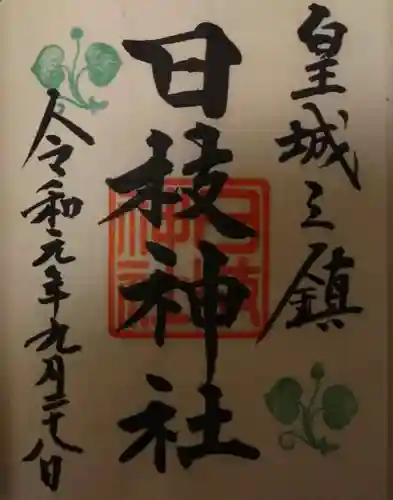 皇城之鎮
日枝神社
令和元年九月二十八日
日枝神社